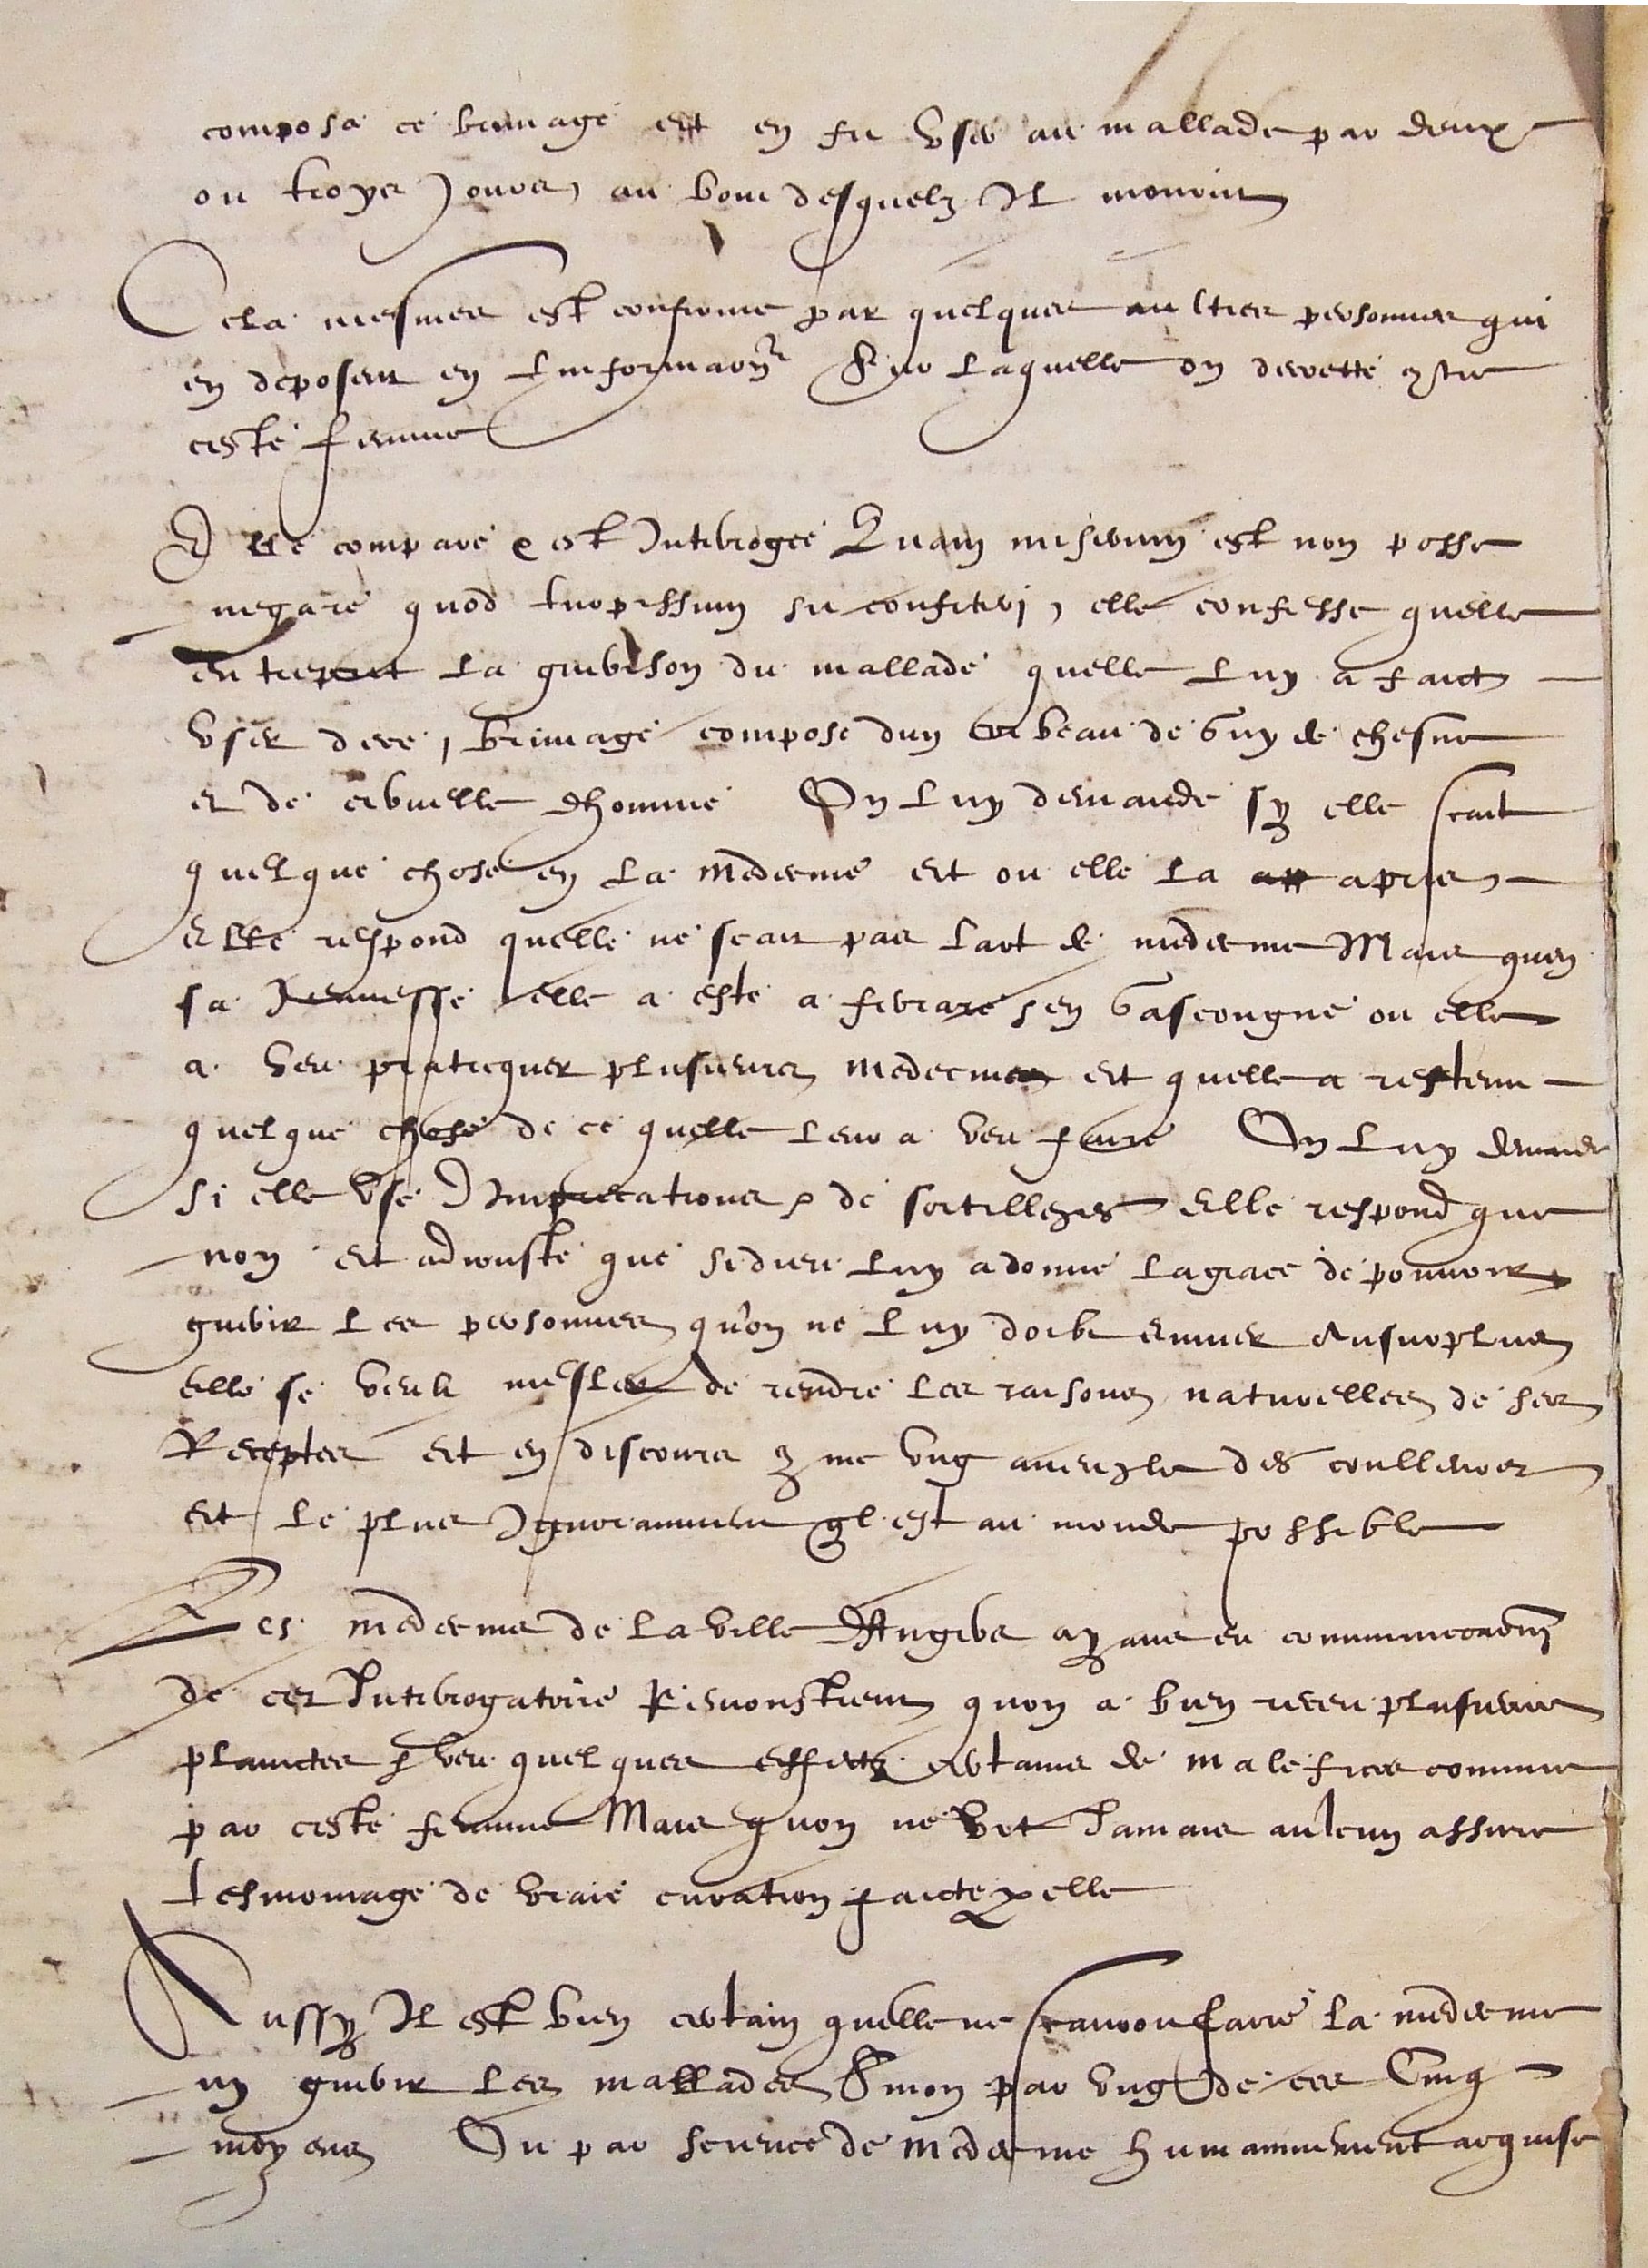 composa ce bruvage et en fit user au mallade par deux
ou troys Jours au bout desquelz Il mourut
Cela mesmes est confirme par quelques aultres personnes qui
en deposent en linformaon Sur laquelle on decrette contre
ceste femme
Elle compare e est Interogee Quam miserum est non posse
negare quod turpissimum sit confiteri, elle confesse quelle
entreprit la guerison du mallade quelle luy a faict
user de ce bruvage compose dun corbeau de Guy de chesne
et de cervelle dhomme On luy demande sy elle scait
quelque chose en la medecine et ou elle la aprise
Elle respond quelle ne scait pas lart de medecine Mais quen
sa Jeunesse elle a este a en Gascongne ou elle
a veu praticquer plusieurs medecins et quelle a restenu
quelque chose de ce quelle leur a veu faire On luy demande
si elle use Dimprecations de sortilleges Elle respond que
non et adiouste que si dieu luy a donne la grace de pouvoir
guerir les personnes qu'on ne luy doibt ennuier Ausurplus
elle se veult mesler de rendre les raisons naturelles de ses
Receptes et en discours comme ung aveugle des coulleurs
et le plus Ignoramment quil est au monde possible
Les medecins de la ville DAngers ayans eu communicaon
de cet Interogatoire Remonstrent quon a bien receu plusieurs
plainctes veu quelques effectz certains de malefices commis
par ceste femme Mais quon ne vit Jamais aulcun assure
tesmoinage de vraie curation faicte par elle
Aussy Il est bien certain quelle ne scauroit faire la medecine
ny guerir les mallades Sinon par ung de ces Cinq
moyens Ou par science de medecine humainement acquise